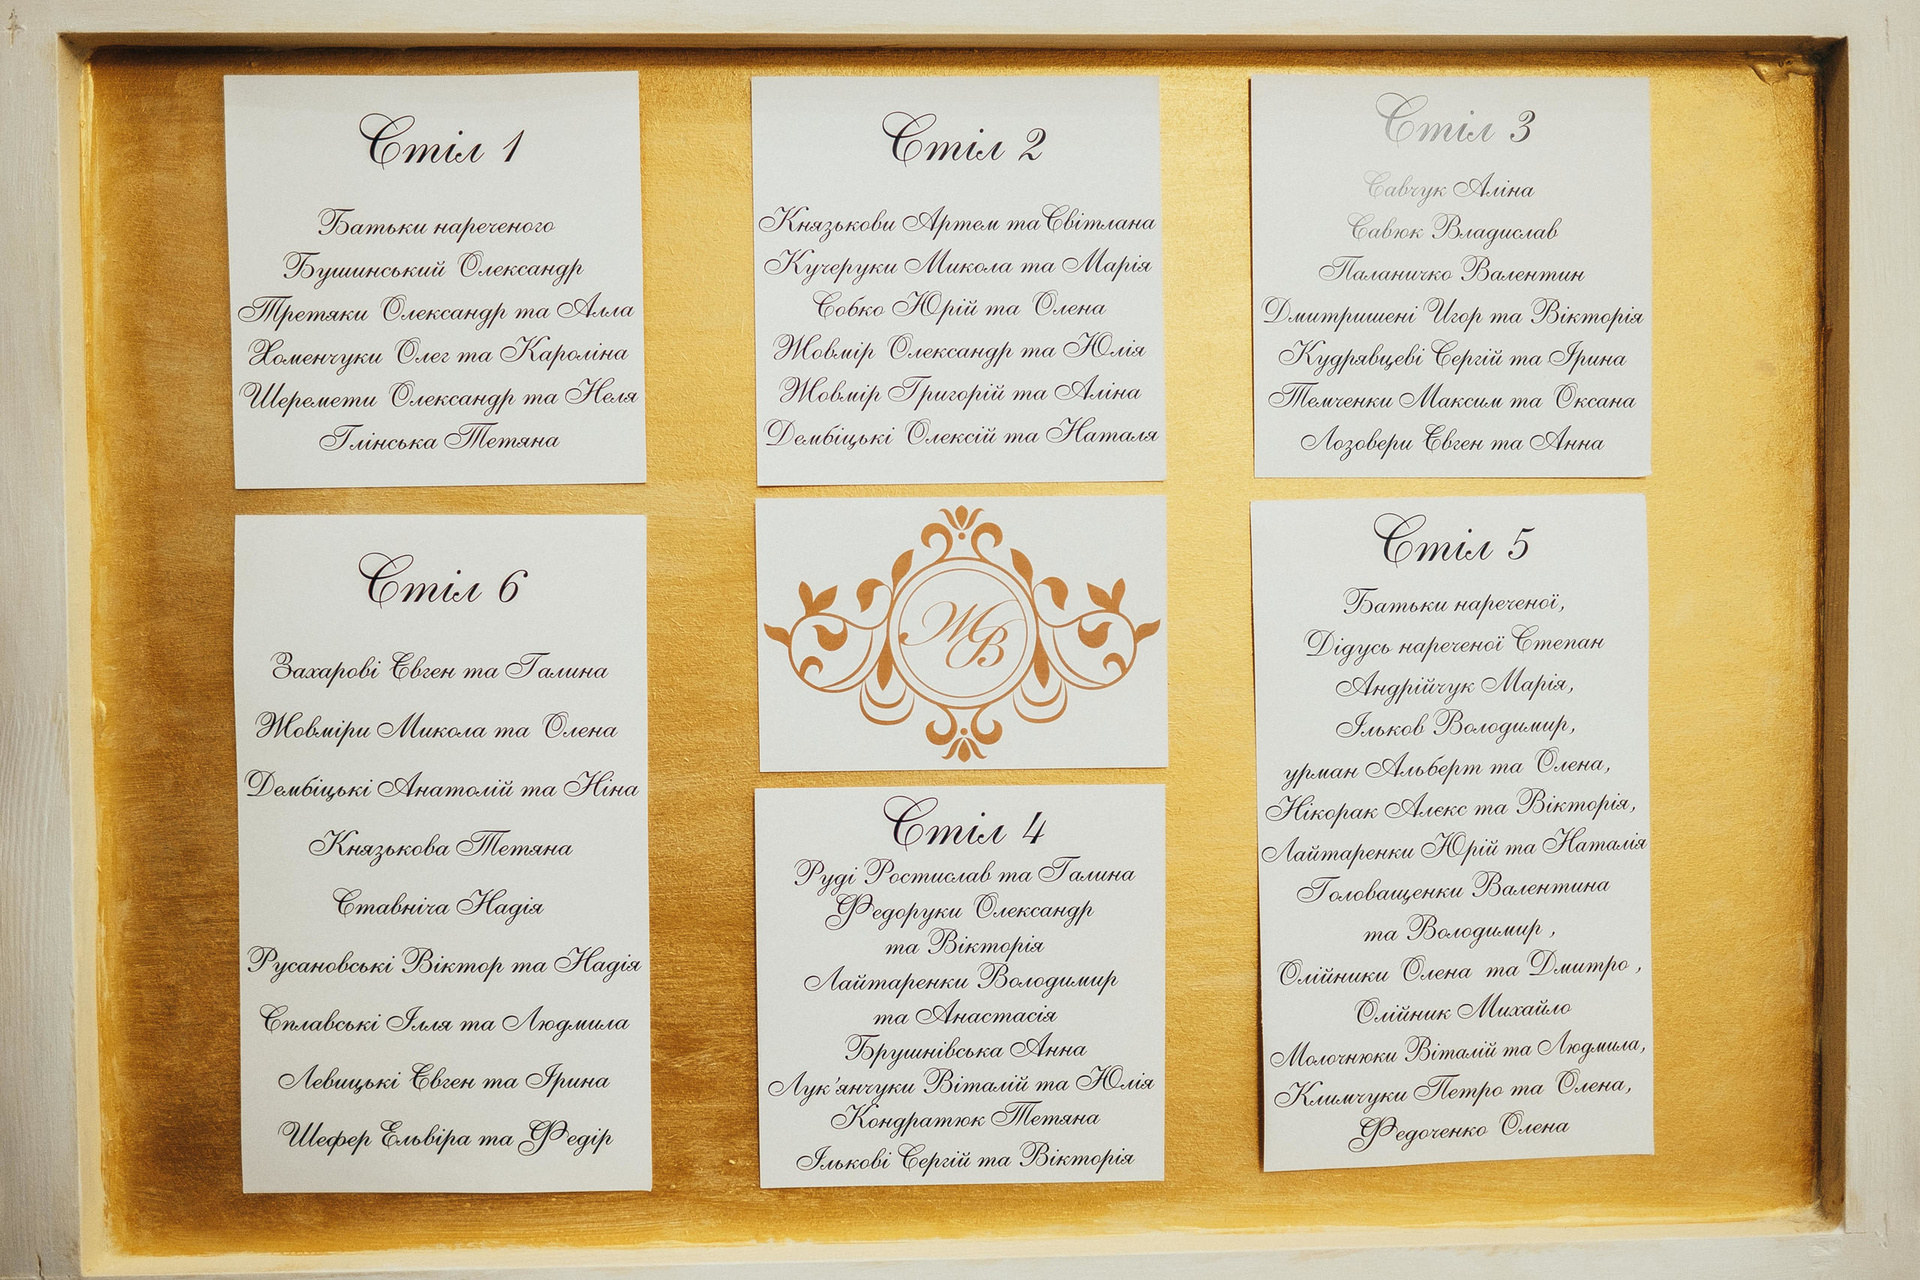 Стіл 1
Батьки нареченого
Бушинський Олександр
Третяки Олександр та Алла
Хоменчуки Олег та Кароліна
Шеремети Олександр та Неля
Глінська Тетяна
Стіл 2
Князькови Артем та Світлана
Кучеруки Микола та Марія
Собко Юрій та Олена
Жовмір Олександр та Юлія
Жовмір Григорій та Аліна
Дембіцькі Олексій та Наталя
Стіл 3
Савчук Аліна
Савюк Владислав
Паланичко Валентин
Дмитришені Игор та Вікторія
Кудрявцеві Сергій та Ірина
Темченки Максим та Оксана
Лозовери Євген та Анна
Стіл 6
Захарові Євген та Галина
Жовміри Микола та Олена
Дембіцькі Анатолій та Ніна
Князькова Тетяна
Ставніча Надія
Русановські Віктор та Надія
Сплавські Ілля та Людмила
Левицькі Євген та Ірина
Шефер Ельвіра та Федір
ЖВ
Стіл 4
Руді Ростислав та Галина
Федоруки Олександр
та Вікторія
Лайтаренки Володимир
та Анастасія
Брушнівська Анна
Лук'янчуки Віталій та Юлія
Кондратюк Тетяна
Ількові Сергій та Вікторія
Стіл 5
Батьки нареченої,
Дідусь нареченої Степан
Андрійчук Марія,
Ільков Володимир,
урман Альберт та Олена,
Нікорак Алєкс та Вікторія,
Лайтаренки Юрій та Наталія
Головащенки Валентина
та Володимир ,
Олійники Олена та Дмитро ,
Олійник Михайло
Молочнюки Віталій та Людмила,
Климчуки Петро та Олена,
Федоченко Олена